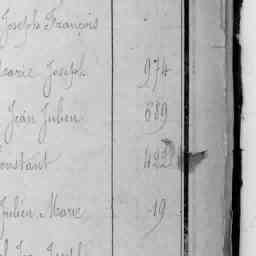 Joseph François
Marie Joseph 274
Jean Julien 689
Constant 422
Julien Marie 19
Joseph